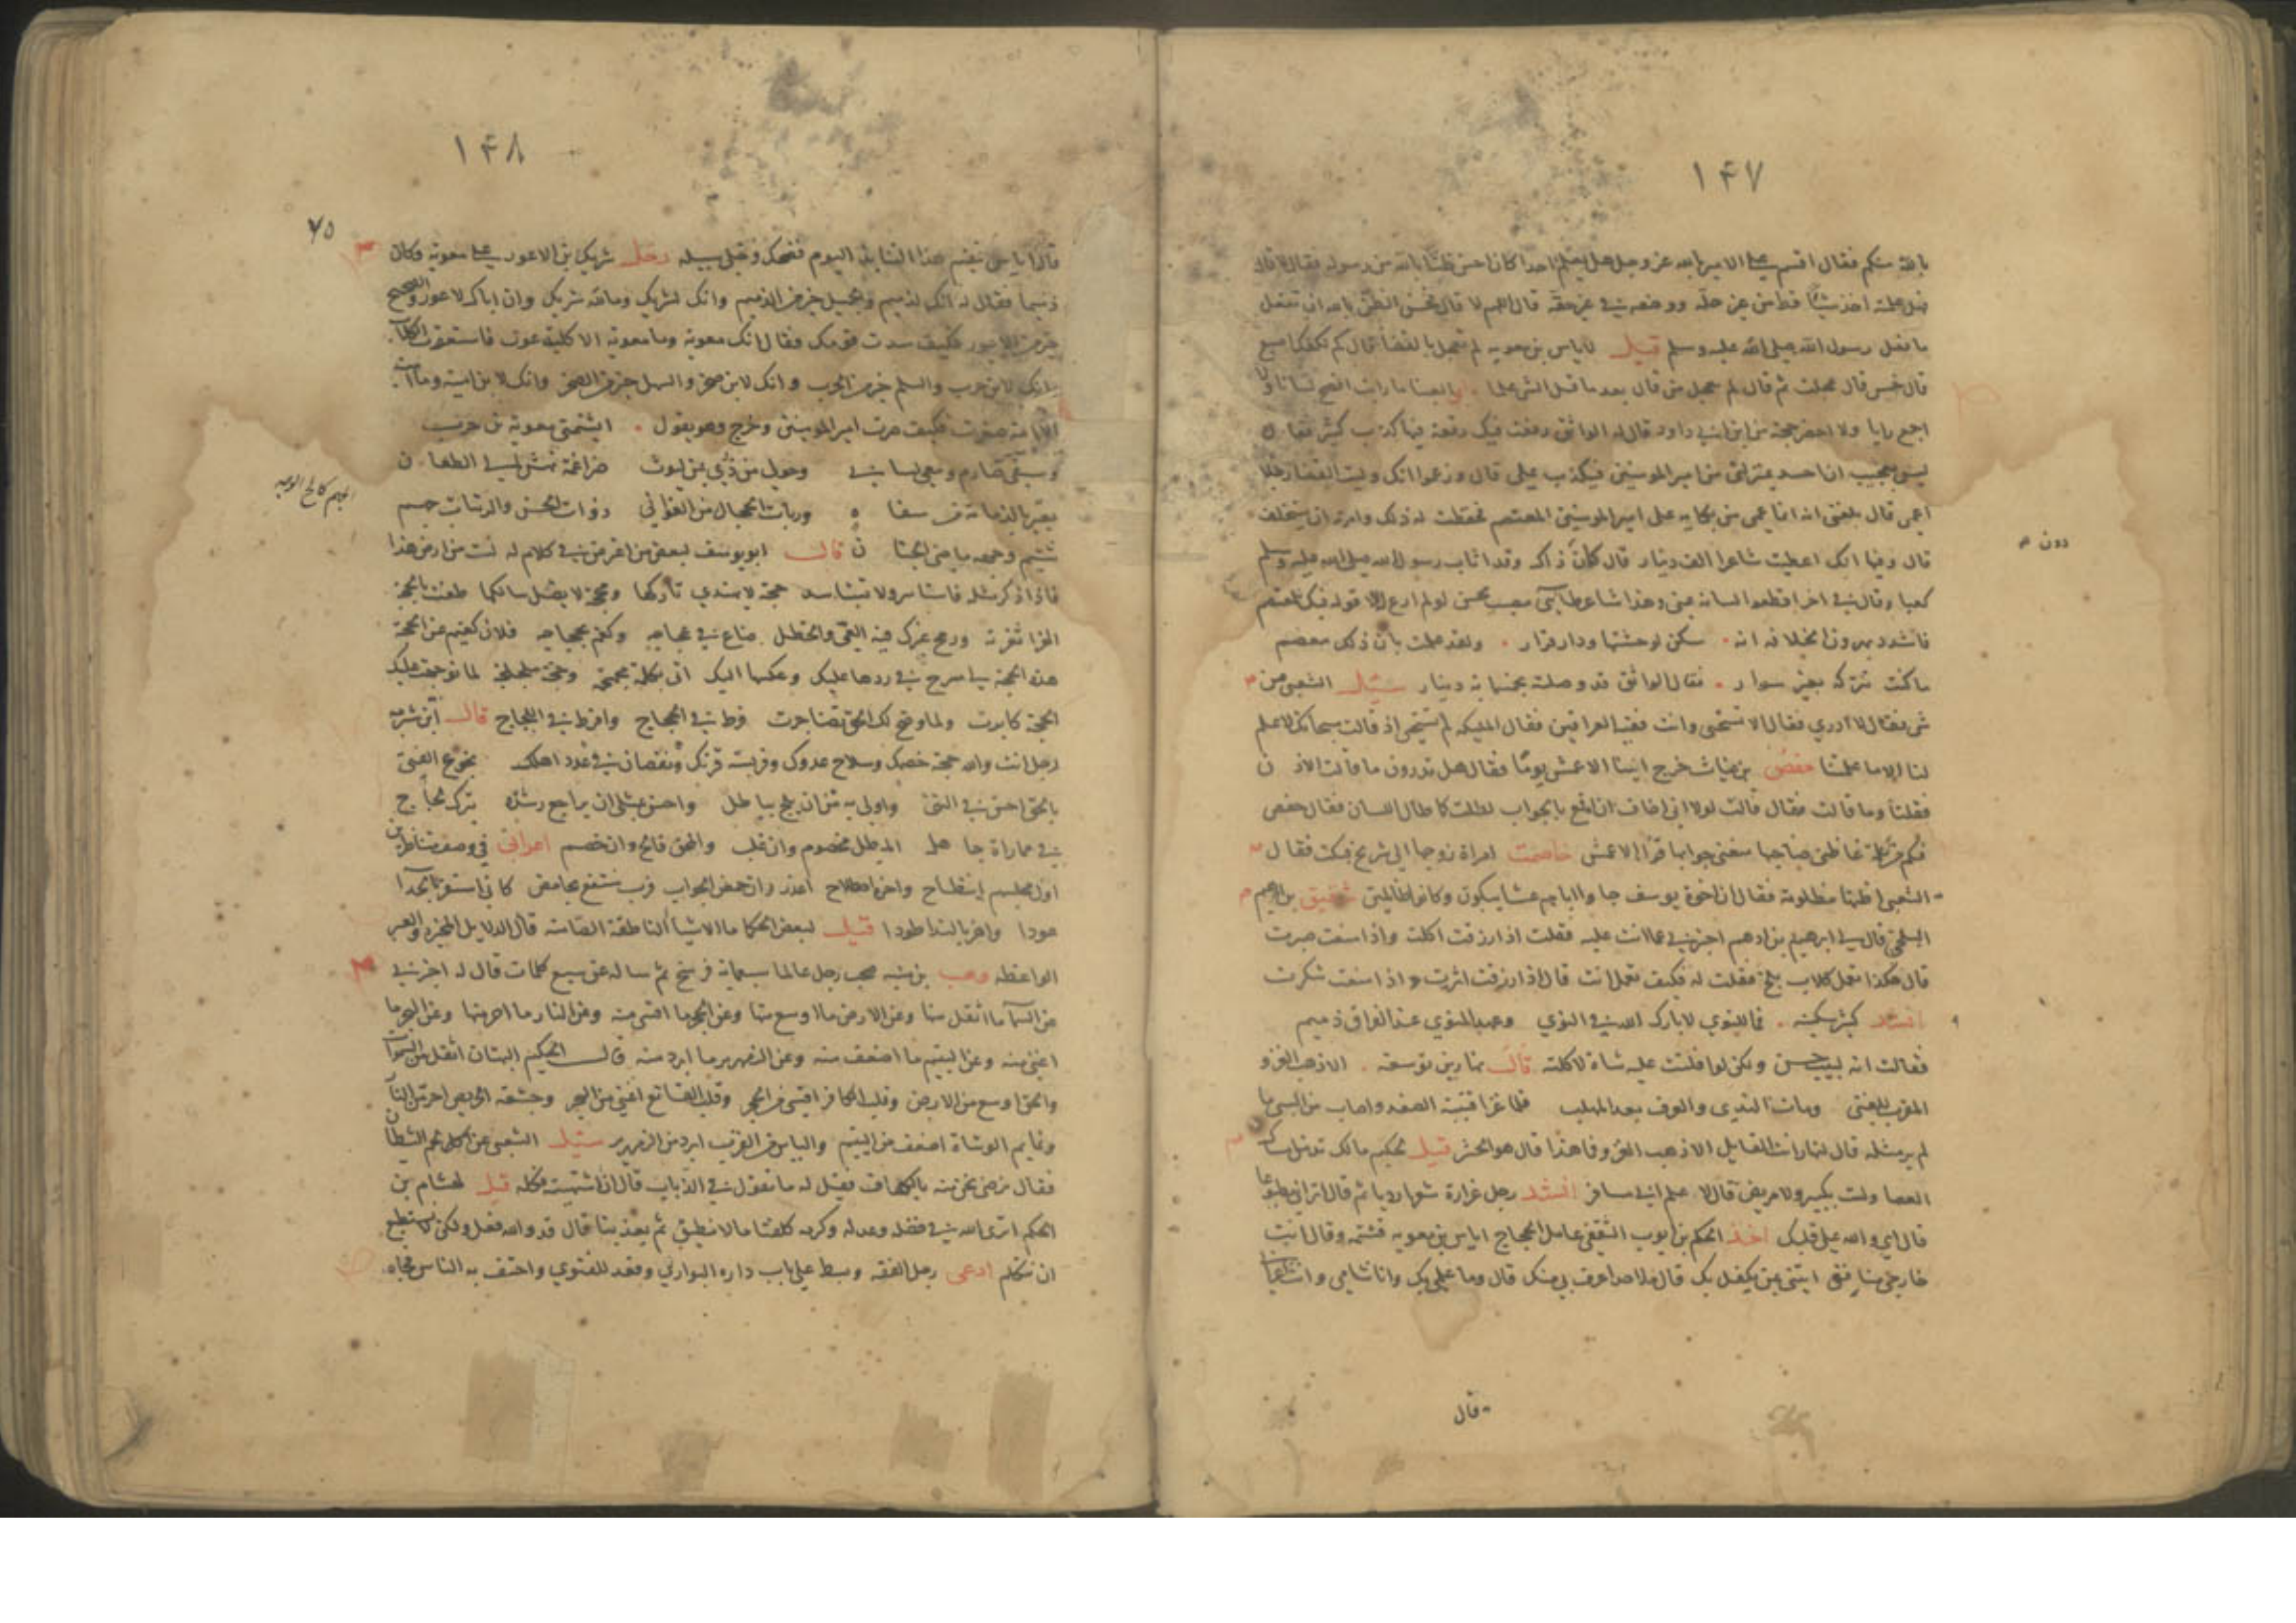 ١٤٧
بالله منكم فقال اقسم على الامير بالله عز وجل هل يعلم احدا كان احسن ظنا بالله من رسوله فقال لا قال
فهل علمته اخذ شيئا قط من غير حله ووضعه في غير حقه قال اللهم لا قال تحسن الظن بالله ان تفعل
ما فعل رسول الله صلى الله عليه وسلم قيل لاياس بن معويه لم تعجل بالقضا قال كم لكفك اصبع
قال خمس قال عجلت ثم قال لم يعجل من قال بعد ما قتل الشي علما ابو العينا ما رايت افصح لسانا ولا
اجمع رايا ولا احضر حجة من ابن ابي داود قال له الواثق رفعت فيك رقعة فيها كذب كثير فقال
ليس بعجب ان احسد بمنزلتي من امير المومنين فيكذب علي قال وزعموا انك وليت القضا رجلا
اعمى قال بلغني انه انما عمي من بكايه على امير المومنين المعتصم فحفظت له ذلك وامرته ان يستخلف
قال وفيها انك اعطيت شاعرا الف دينار قال كان ذاك وقد اثاب رسول الله صلى الله عليه وسلم
كعبا وقال في اخر اقطعوا لسانه عني وهذا شاعر طايي محسن لو لم ارع الا قوله فيك للمعتصم
فاشدد بهرون الخلافه انه سكن لوحشتها ودار قرار ولقد علمت بان ذلك معصم
ما كنت تتركه بغير سوار فقال الواثق قد وصلته بخمسمائة دينار سئل الشعبي عن
شي فقال لا ادري فقال الا تستحي وانت فقيه العراقين فقال المليكه لم تستحي اذ قالت سبحانك لا علم
لنا الا ما علمتنا حفص بن غياث خرج الينا الاعمش يوما فقال هل تدرون ما قالت الاذن
فقلنا وما قالت فقال قالت لولا اني اخاف ان اقمع بالجواب لطلت كما طال اللسان فقال حفص
فكم من كلمة غاظني صاحبها منعني جوابها قول الاعمش خاصمت امراة زوجها الى شريح فبكت فقال
الشعبي اظنها مظلومة فقال ان اخوة يوسف جاوا اباهم عشا يبكون وكانوا ظالمين شقيق بن ابرهيم
البلخي قال لي ابرهيم بن ادهم اخبرني عما انت عليه فقلت اذا رزقت اكلت واذا منعت صبرت
قال هكذا تعمل كلاب بلخ فقلت له فكيف تعمل انت قال اذا رزقت اثرت واذا منعت شكرت
انشد كثير سكينه فما للنوى لا بارك الله في النوى وعهد النوى عند الفراق ذميم
فقالت انه ليس حسن ولكن لو افلتت عليه شاة لاكلته قال نهار بن توسعه الا ذهب الغزو
المقرب للغنى ومات الندى والعرف بعد المهلب فلما غزا قتيبة الصغد واصاب من السبي ما
لم ير مثله قال لنهار انت القايل الا ذهب الغزو فما هذا قال هو الحشر قيل لحكيم مالك تدمن مساك
العصا ولست بكبير ولا مريض قال لاعلم اني مسافر انشد رجل فزارة شعرا رديا ثم قال اتراني مطبوعا
قال اي والله على قلبك اخذ الحكم بن ايوب الثقفي عامل الحجاج اياس بن معويه فشتمه وقال انت
خارجي منافق ايتني بمن يكفل بك قال فلا احد اعرف بي منك قال وما علمي بك وانا شامي وانت
قال
دون
١٤٨
٧٥
قال اياس ففيم هذا الثنا بهذا اليوم فضحك وخلى سبيله دخل شريك بن الاعور على معوية وكان
ذميما فقال له انك لذميم والجميل خير من الذميم وانك لشريك وما لله شريك وان اباك لاعور والصحيح
خير من الاعور فكيف سدت قومك فقال انك معوية وما معوية الا كلبة عوت فاستعوت الكلاب
وانك لابن حرب والسلم خير من الحرب وانك لابن صخر والسهل خير من الصخر وانك لابن امية وما امية
الا امة صغرت فكيف صرت امير المومنين وخرج وهو يقول ايشتمني معوية بن حرب
وسيفي صارم ومعي لساني وحولي من ذوي يمن ليوث ضراغمة تهش الى الطعان
يعير بالدمامة من سفاه وربات الحجال من الغواني ذوات الحسن والريبال جهم
شتيم وجهه ماضي الجنان قال ابو يوسف لبعض من اعترض في كلام له لست من ارض هذا
فاذا ذكر مثله فاستاسر ولا تتشاسد حجة لا يهتدي تاركها ومحجة لا يضل سالكها طعنت بالحجة
هذه الحجة يا اسرح في ردها عليك وعكسها اليك لما توجهت عليك
الحجة كابرت ولما وضح لك الحق تضاجرت فرط في الحجاج وافرط في اللجاج قال ابن شبرمه
رجل انت والله حجة خصمك وسلاح عدوك وفريسة قرنك
بالحق احق في التقى واولى به من ان يلج بباطل واحسن بمثلي ان يراجع رشده بترك لجاج
في مماراة جاهل المبطل مخصوم وان غلب والمحق فالج وان خصم اعرابي في وصف متناظرين
هودا واخر بالندا طودا قيل لبعض الحكما ما الاشيا الناطقة الصامته قال الدلايل المخبره والعبر
الواعظه وهب بن منبه صحب رجل عالما سبعماية فرسخ ثم ساله عن سبع كلمات قال له اخبرني
عن السما ما اثقل منها وعن الارض ما اوسع منها وعن الحجر ما اقسى منه وعن النار ما احر منها وعن البحر ما
اغنى منه وعن اليتيم ما اضعف منه وعن الزمهرير ما ابرد منه قال الحكيم البهتان اثقل من السموات
والحق اوسع من الارض وقلب الكافر اقسى من الحجر وقلب القانع اغنى من البحر وجشعة الحريص احر من النار
ونمايم الوشاة اضعف من اليتيم والياس من القريب ابرد من الزمهرير سئل الشعبي عن اكل لحم الشيطان
فقال نرضى نحن منه بالكفاف فقيل له ما تقول في الذباب قال ان اشتهيته فكله قيل لهشام بن
الحكم اترى الله في فضله وعدله وكرمه كلفنا ما لا نطيق ثم يعذبنا قال قد والله فعل ولكن لا نستطيع
ان نتكلم ادعى رجل الفقه وبسط على باب داره البواري وقعد للفتوى واحتف به الناس فجاه
الجهم كالح الوجه